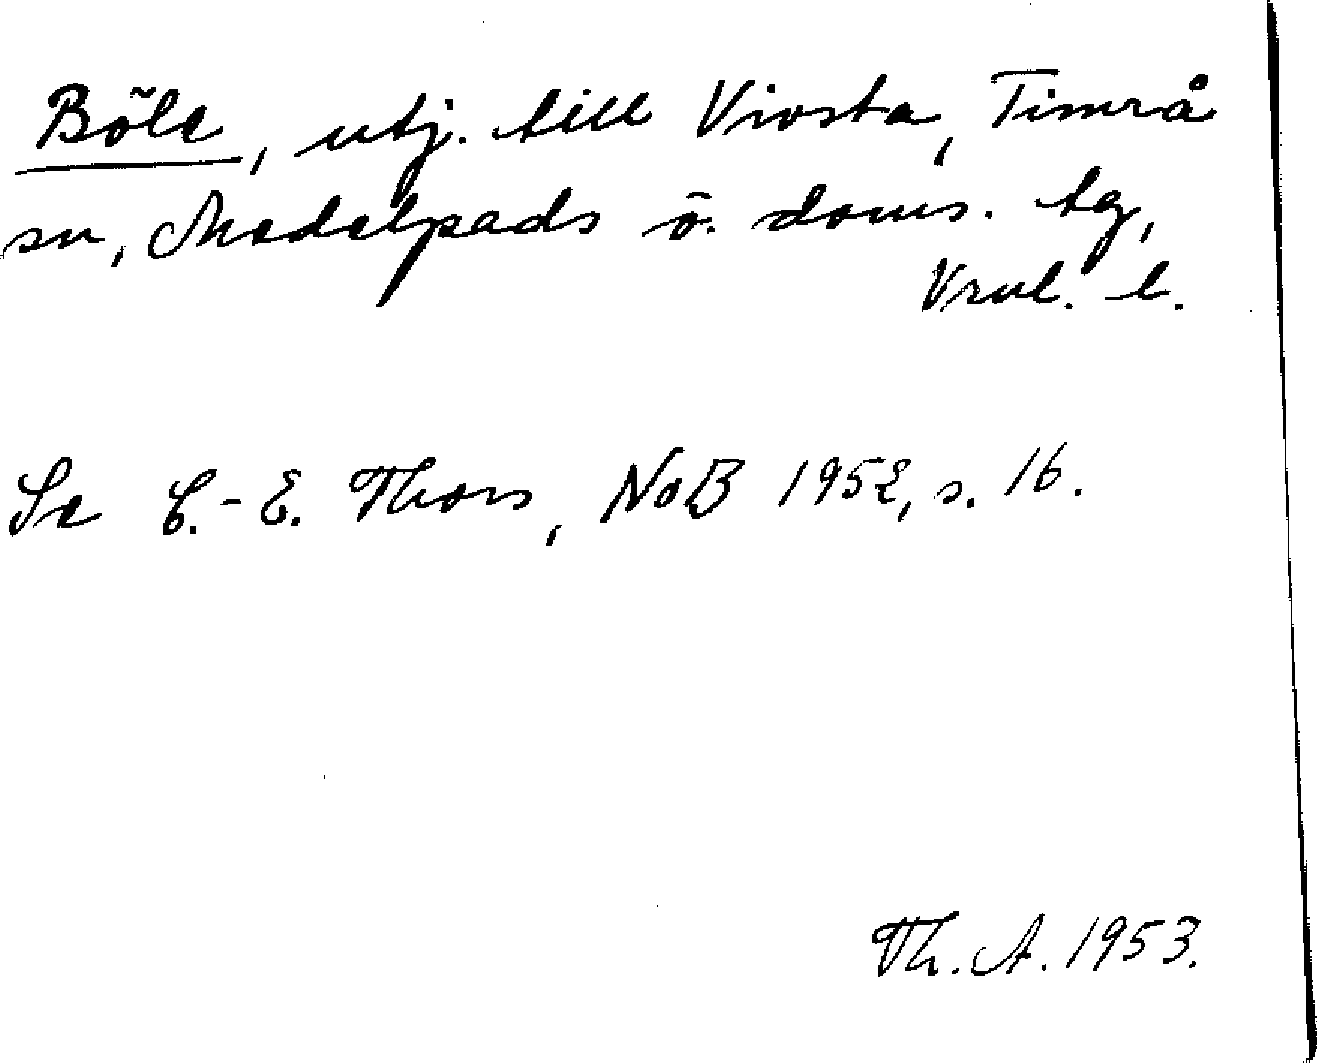 Böle, utj. till Vivsta, Timrå
sn, Medelpads ö. doms. tg,
Vnl. l.
Se C.-E. Thors, NoB 1952, s. 16.
Th. A. 1953.